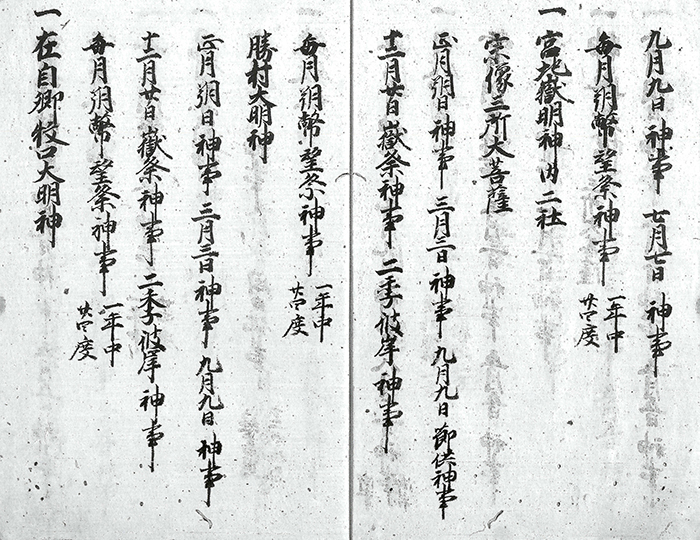 九月九日神事 七月七日 神事
毎月朔幣望祭神事 一年中
廿四度
一 宮地嶽明神 内 二社
宗像三所大菩薩
正月朔日神事 三月三日神事 九月九日 節供神事
十二月廿日嶽祭神事 二季彼岸神事
毎月朔幣望祭神事 一年中
廿四度
勝村大明神
正月朔日神事 三月三日神事 九月九日 神事
十二月廿日嶽祭神事 二季彼岸 神事
毎月朔幣望祭神事 一年中
廿四度
一 在自郷牧口大明神